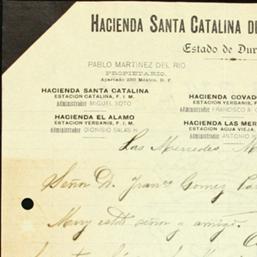 HACIENDA SANTA CATALINA DE
Estado de Dur
PABLO MARTINEZ DEL RIO
PROPIETARIO.
Apartado 250 México, D. F.
HACIENDA SANTA CATALINA
ESTACION CATALINA, F. I. M.
Administrador MIGUEL SOTO
HACIENDA COVADO
ESTACION YERBANIS, F. I.
Administrador FRANCISCO A.
HACIENDA EL ALAMO
ESTACION YERBANIS, F. I. M.
Administrador DIONISIO SALAS H
HACIENDA LAS MER
ESTACION AGUA VIEJA,
Administrador ANTONIO
Las Mercedes M
Señor D. Franco Gomez Pa
Muy estdo señor y amigo.